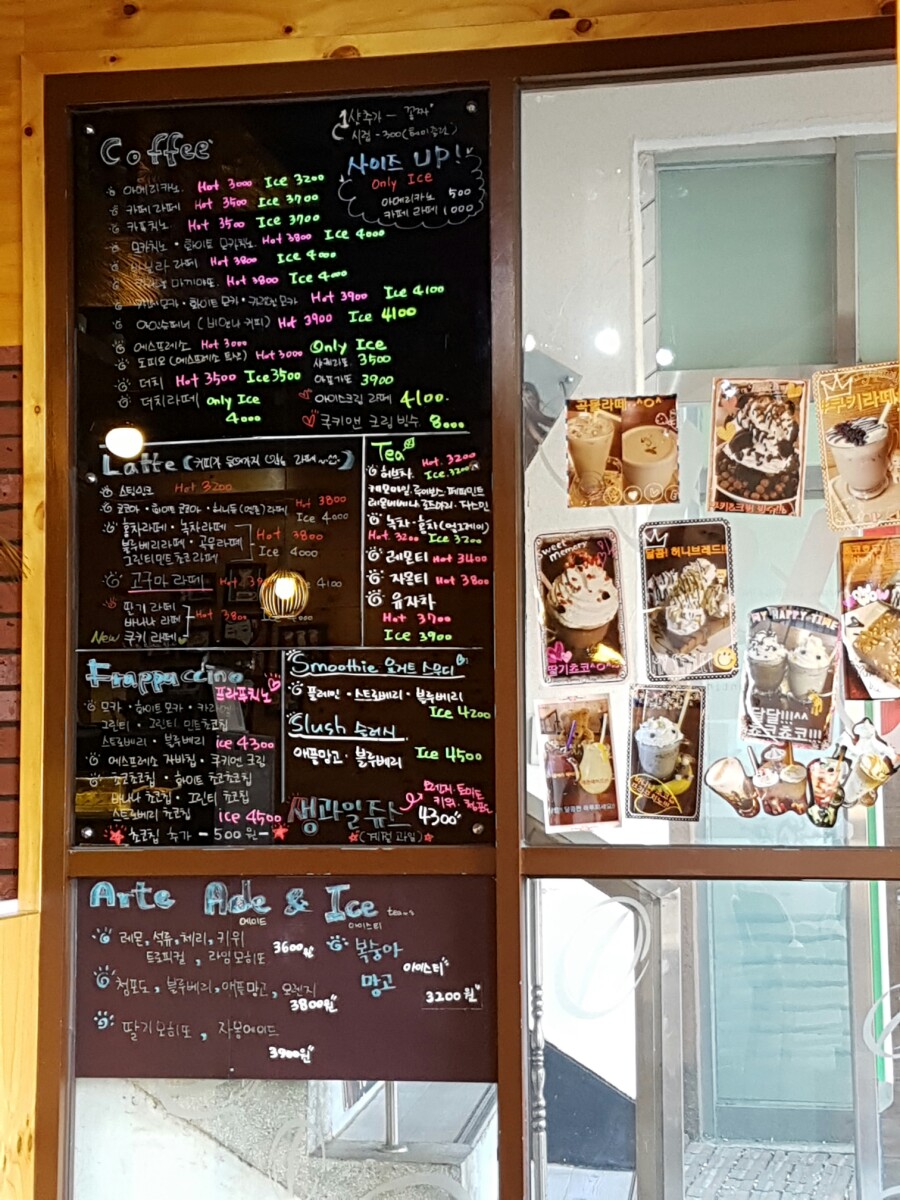 Coffee
1샷추가 - 공짜
시럽 - 300
사이즈 UP!
Only Ice
아메리카노 500
카페라떼 1000
아메리카노 Hot 3000 Ice 3200
카페라떼 Hot 3500 Ice 3700
카푸치노 Hot 3500 Ice 3700
모카치노 · 화이트 모카치노 Hot 3800 Ice 4000
바닐라 라떼 Hot 3800 Ice 4000
마끼아또 Hot 3800 Ice 4000
화이트 모카 · 모카 Hot 3900 Ice 4100
아인슈페너 (비엔나 커피) Hot 3900 Ice 4100
에스프레소 Hot 3000
도피오 (에스프레소 ) Hot 3000
더치 Hot 3500 Ice 3500
더치라떼 only Ice
4000
Only Ice
샤케라또 3500
아포가토 3900
아이스크림 라떼 4100
쿠키앤 크림 빙수 8000
Latte (커피가 들어가지 않는 라떼)
Hot 3200
허니듀(멜론)라떼 Hot 3800
Ice 4000
홍차라떼 · 녹차라떼
블루베리라떼 · 곡물라떼
그린티민트초코라떼
Hot 3800
Ice 4000
고구마 라떼
딸기 라떼
바나나 라떼
New 쿠키 라떼
Hot 3800
Tea
허브차 Hot 3200
Ice 3200
캐모마일, 루이보스, 페퍼민트
녹차 · 홍차(얼그레이)
Hot 3200 Ice 3200
레몬티 Hot 3400
자몽티 Hot 3800
유자차
Hot 3700
Ice 3900
Frappuccino
프라푸치노
모카 · 화이트 모카 · 카라멜
그린티 · 그린티 민트초코칩
스트로베리 · 블루베리 ice 4300
에스프레소 자바칩 · 쿠키앤 크림
초코초코칩 · 화이트 초코초코칩
바나나 초코칩 · 그린티 초코칩
스트로베리 초코칩 ice 4500
초코칩 추가 - 500원
Smoothie 요거트 스무디
플레인 · 스트로베리 · 블루베리
Ice 4200
Slush 슬러시
애플망고 · 블루베리 Ice 4500
생과일쥬스 4300
(계절 과일)
딸기 · 토마토
키위 · 청포도
Arte Ade & Ice tea
에이드
아이스티
레몬, 석류, 체리, 키위
트로피컬, 라임모히또 3600원
청포도, 블루베리, 애플망고, 오렌지
3800원
딸기모히또, 자몽에이드
3900원
복숭아
망고 아이스티
3200원
곡물라떼 ^o^
쿠키라떼
Sweet Memory
딸기초코^o^
달콤! 허니브레드!!
MY HAPPY TIME
달달!!!^^
쵸코쵸코!!!